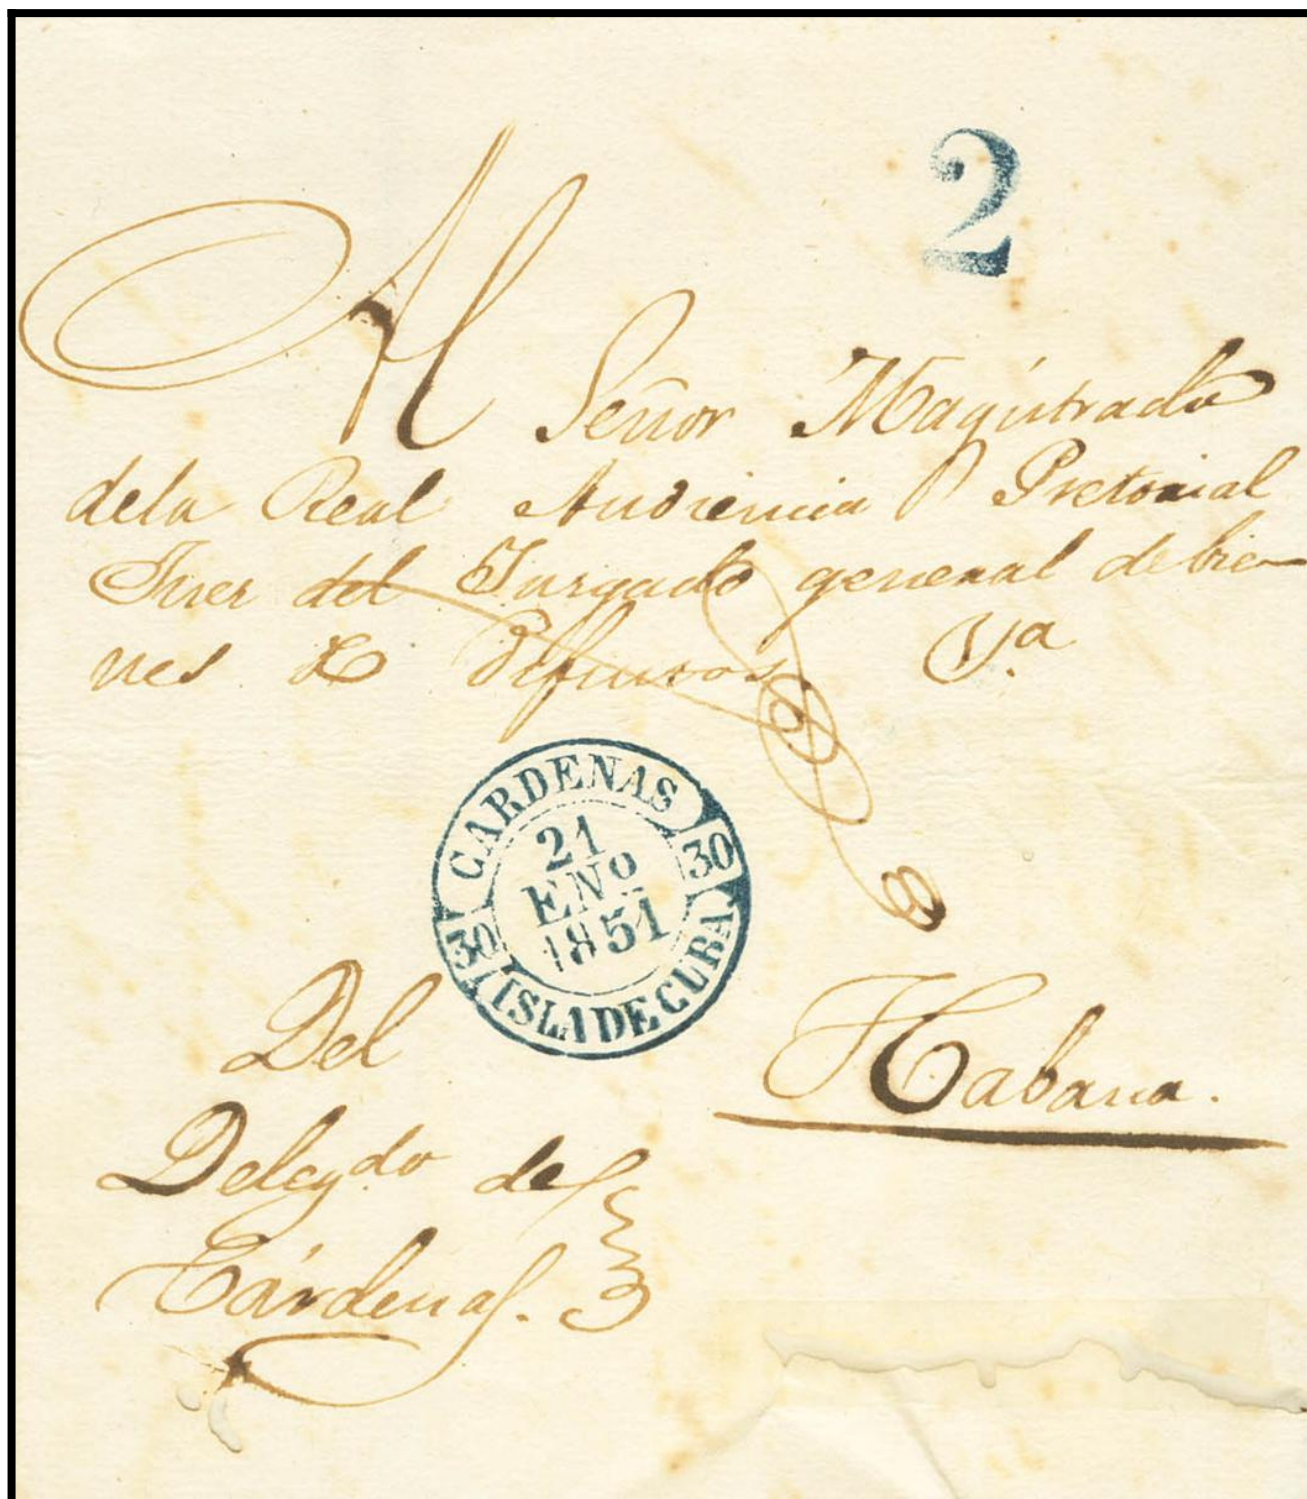 2
Al Señor Magistrado
dela Real Audiencia Pretorial
Juez del Juzgado general de bie-
nes de Difuntos
CARDENAS
30 30
21
ENO
1851
ISLA DE CUBA
Del
Delegdo de
Cárdenas.
Habana.